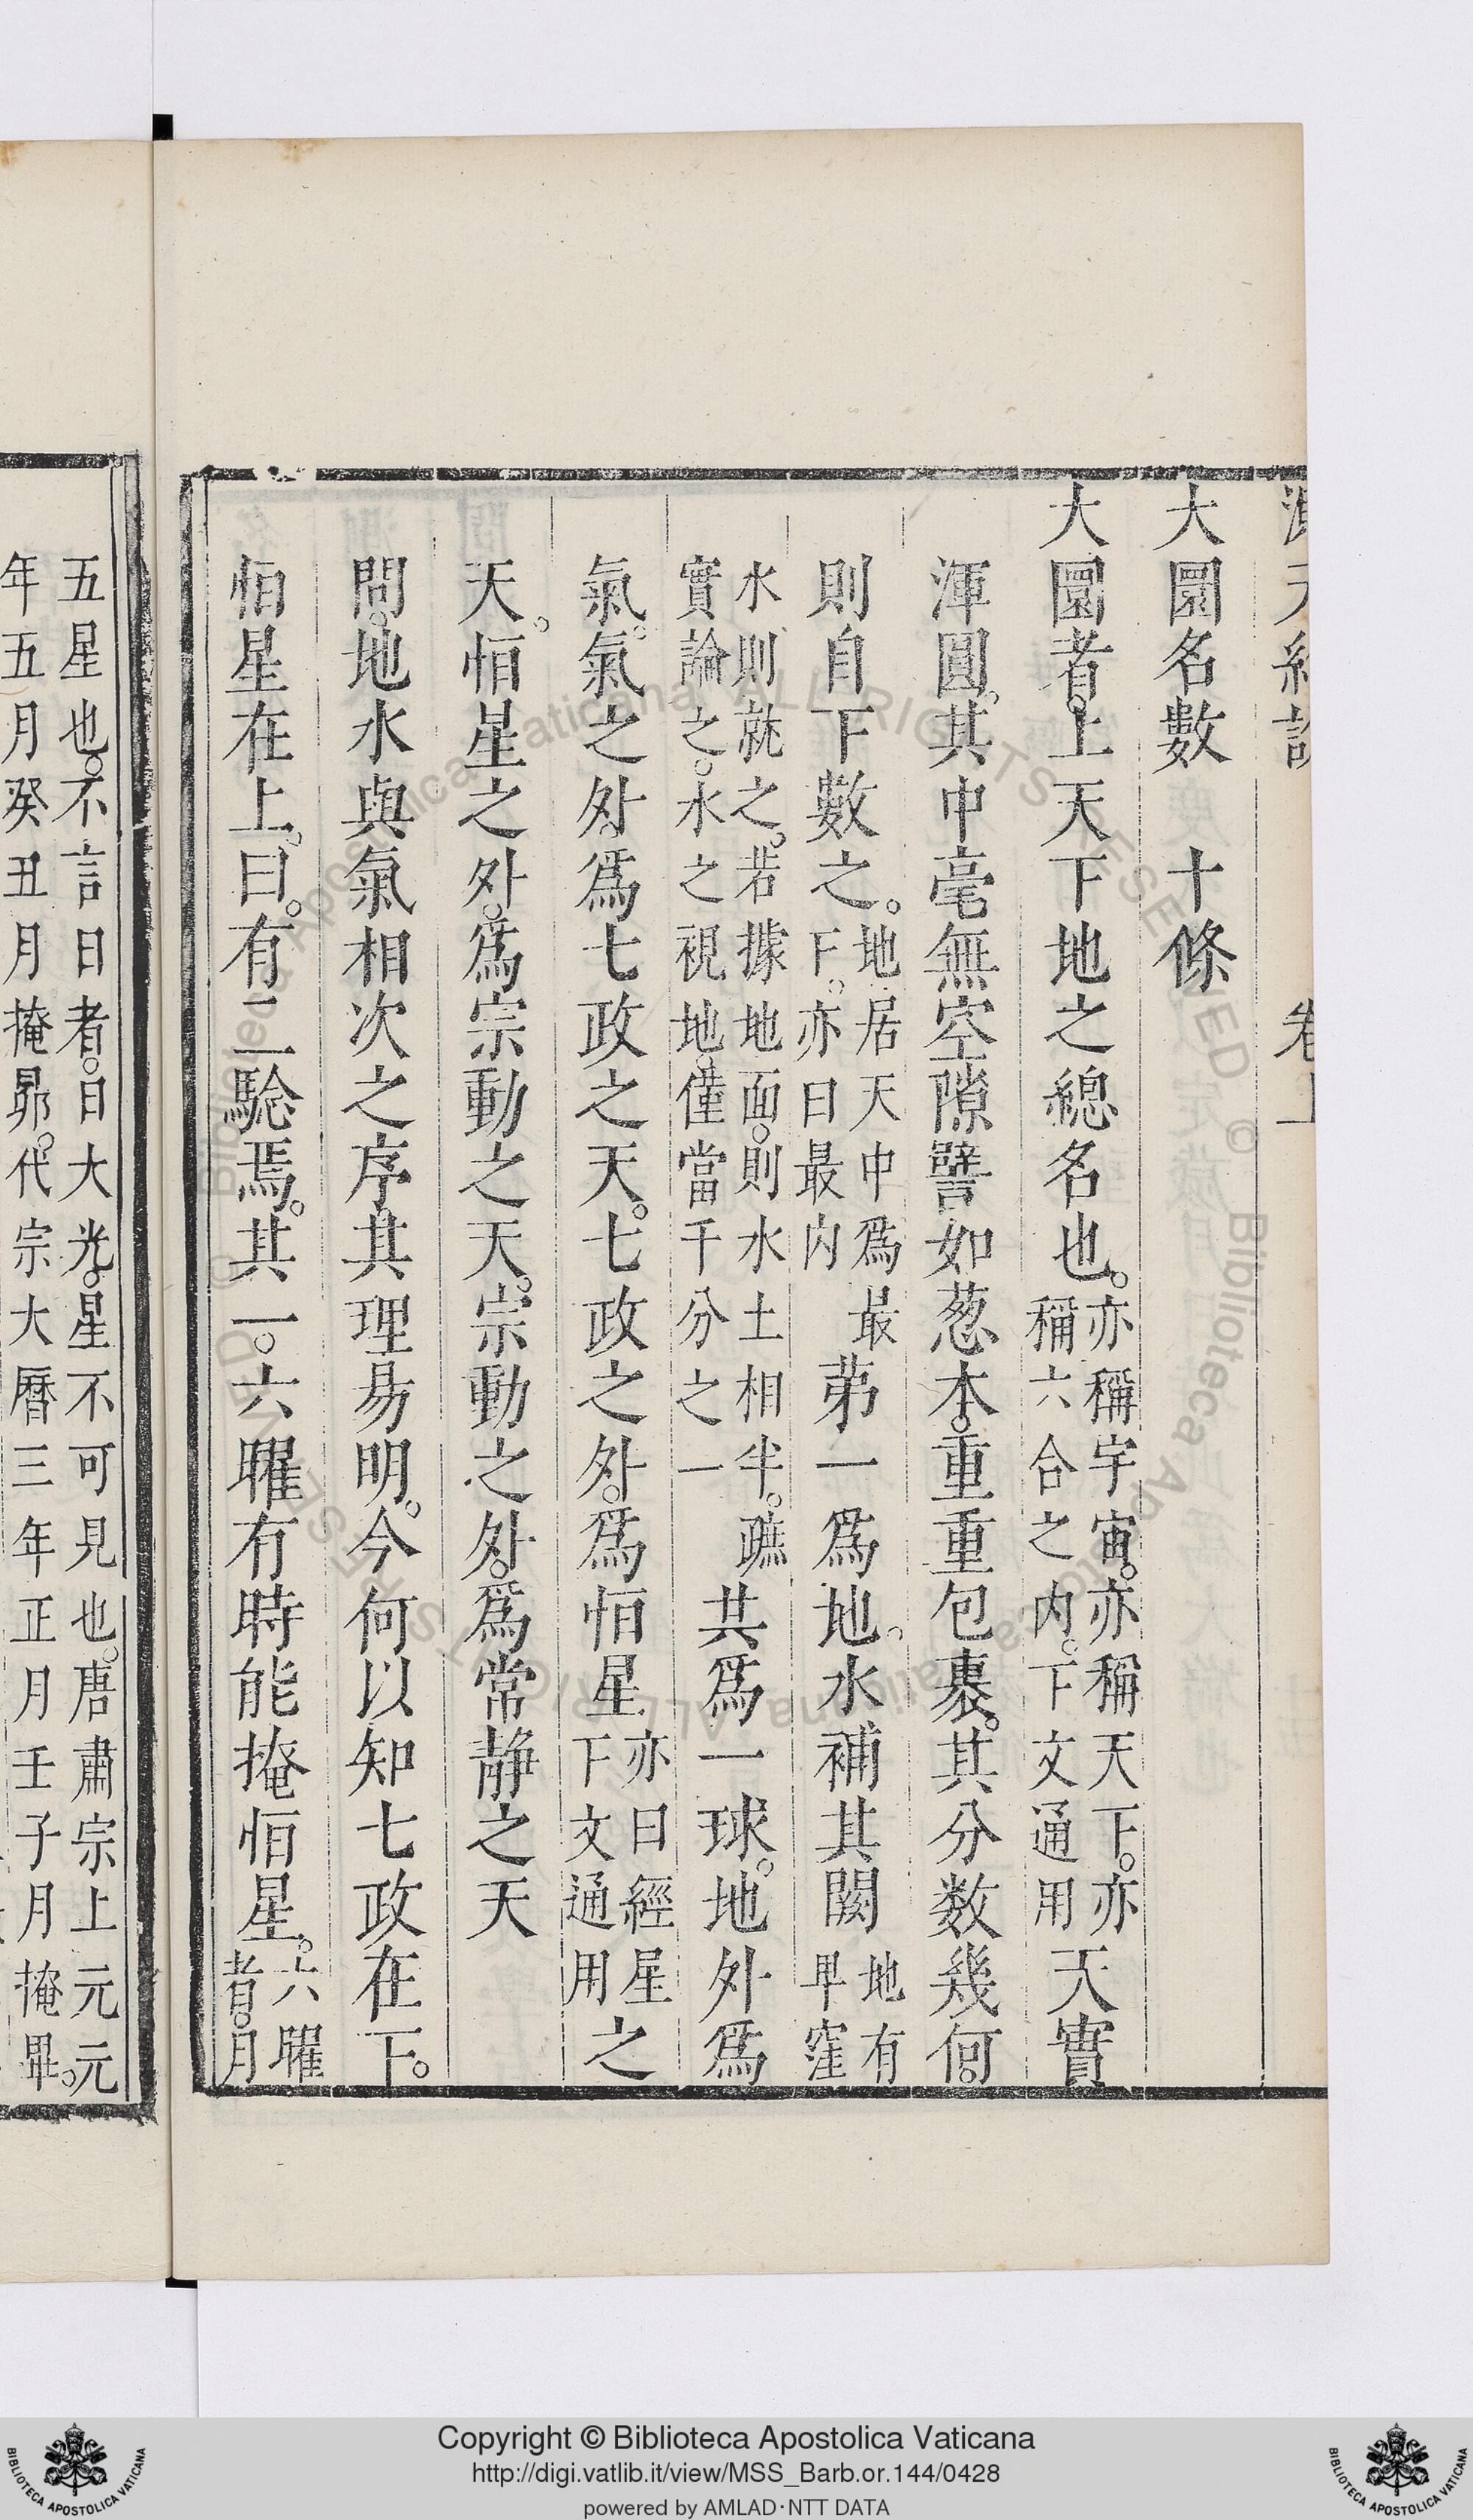 大圜名數 十條
大圜者。上天下地之總名也。亦稱宇宙。亦稱天下。亦稱六合之内。下文通用天實
渾圓。其中毫無空隙譬如葱本。重重包裹。其分数幾何。
則自下數之。地居天中爲最下。亦曰最内苐一爲地。水補其闕地有卑窪
水則就之。若據地面。則水土相半。蹠實論之。水之視地。僅當千分之一共爲一球。地外爲
氣。氣之外。爲七政之天。七政之外。爲恒星亦曰經星下文通用之
天。恒星之外。爲宗動之天。宗動之外。爲常静之天
問。地水與氣相次之序。其理易明。今何以知七政在下。
恒星在上。曰。有二騐焉。其一。六曜有時能掩恒星。六曜者。月
五星也。不言日者。日大光。星不可見也。唐肅宗上元元
年五月癸丑月掩昴。代宗大曆三年正月壬子月掩畢。
Copyright © Biblioteca Apostolica Vaticana
http://digi.vatlib.it/view/MSS_Barb.or.144/0428
powered by AMLAD·NTT DATA